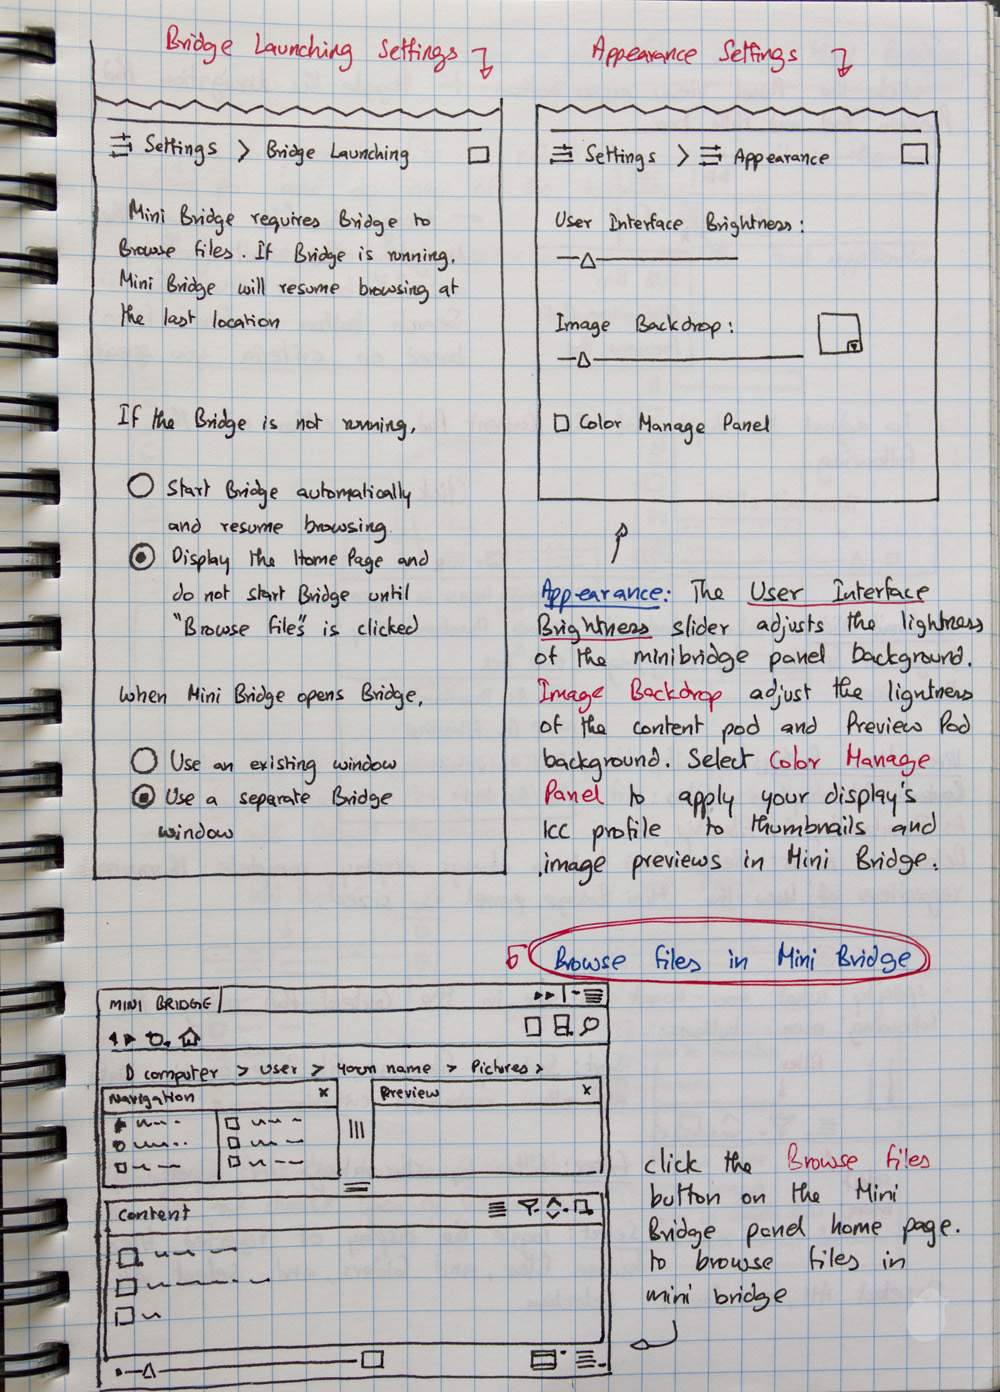 Bridge Launching Settings
Settings > Bridge Launching
Mini Bridge requires Bridge to
Browse files. If Bridge is running,
Mini Bridge will resume browsing at
the last location
If the Bridge is not running,
Start Bridge automatically
and resume browsing.
Display the Home Page and
do not start Bridge until
"Browse files" is clicked
when Mini Bridge opens Bridge,
Use an existing window
Use a separate Bridge
window
Appearance Settings
Settings > Appearance
User Interface Brightness:
Image Backdrop:
Color Manage Panel
Appearance: The User Interface
Brightness slider adjusts the lightness
of the minibridge panel background.
Image Backdrop adjust the lightness
of the content pod and Preview Pod
background. Select Color Manage
Panel to apply your display's
ICC profile to thumbnails and
image previews in Mini Bridge.
Browse files in Mini Bridge
MINI BRIDGE
computer > user > your name > Pictures >
Navigation x
Preview x
Content
click the Browse files
button on the Mini
Bridge panel home page.
to browse files in
mini bridge